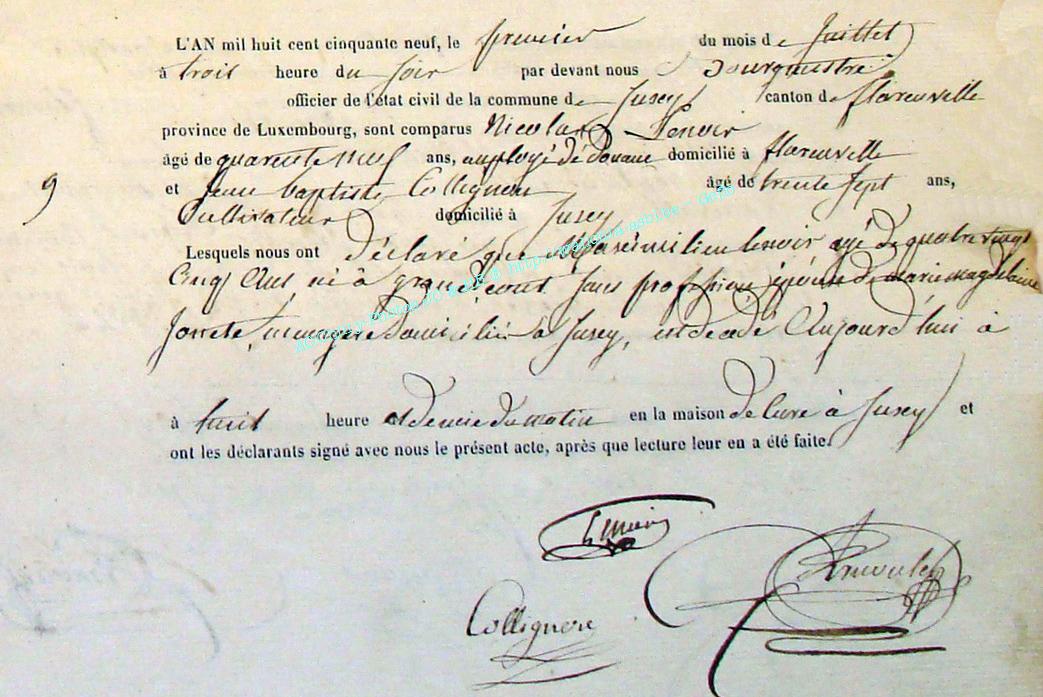 L'AN mil huit cent cinquante neuf, le premier du mois de Juillet
à trois heure du soir par devant nous Bourgmestre
officier de l'état civil de la commune de Jusey canton de florenville
province de Luxembourg, sont comparus Nicolas Lenoir
âgé de quarente neuf ans, employé de Douane domicilié à florenville
9 et Jean baptiste Collignon âgé de trente sept ans,
Cultivateur domicilié à Jusey
Lesquels nous ont déclaré que lenoir agé de quatre vingt
Cinq Ans né à sans profession époux de marie magdelaine
menagere Domicilié à Jusey, est décédé Aujourd'hui à
à huit heure et demie du matin en la maison à Jusey et
ont les déclarants signé avec nous le présent acte, après que lecture leur en a été faite.
Lenoir
Collignon